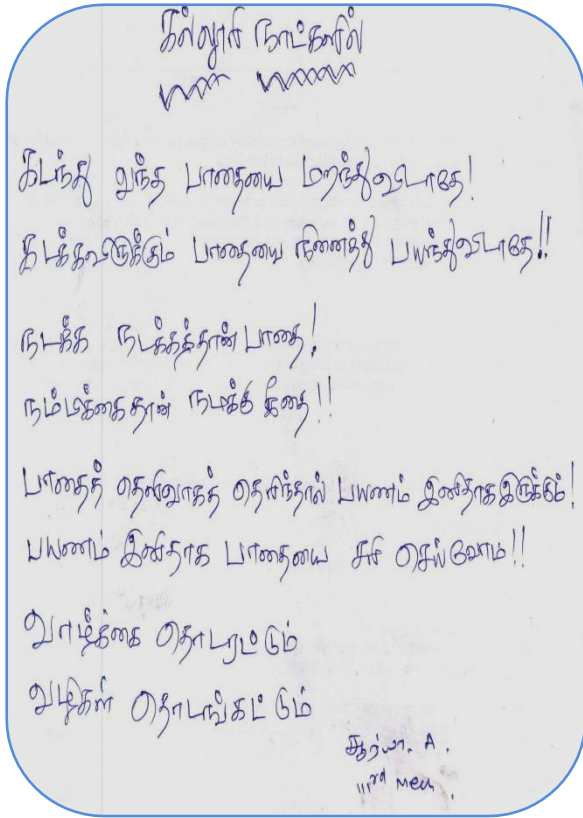 கல்லூரி நாட்களில்
கடந்து வந்த பாதையை மறந்துவிடாதே!
கடக்கவிருக்கும் பாதையை நினைத்து பயந்துவிடாதே!!
நடக்க நடக்கத்தான் பாதை!
நம்பிக்கைதான் நமக்கு கீதை!!
பாதைத் தெளிவாகத் தெரிந்தால் பயணம் இனிதாகஇருக்கும்!
பயணம் இனிதாக பாதையை சரி செய்வோம்!!
வாழ்க்கை தொடரட்டும்
வழிகள் தொடங்கட்டும்
சூர்யா. A.
IIIrd Mech.